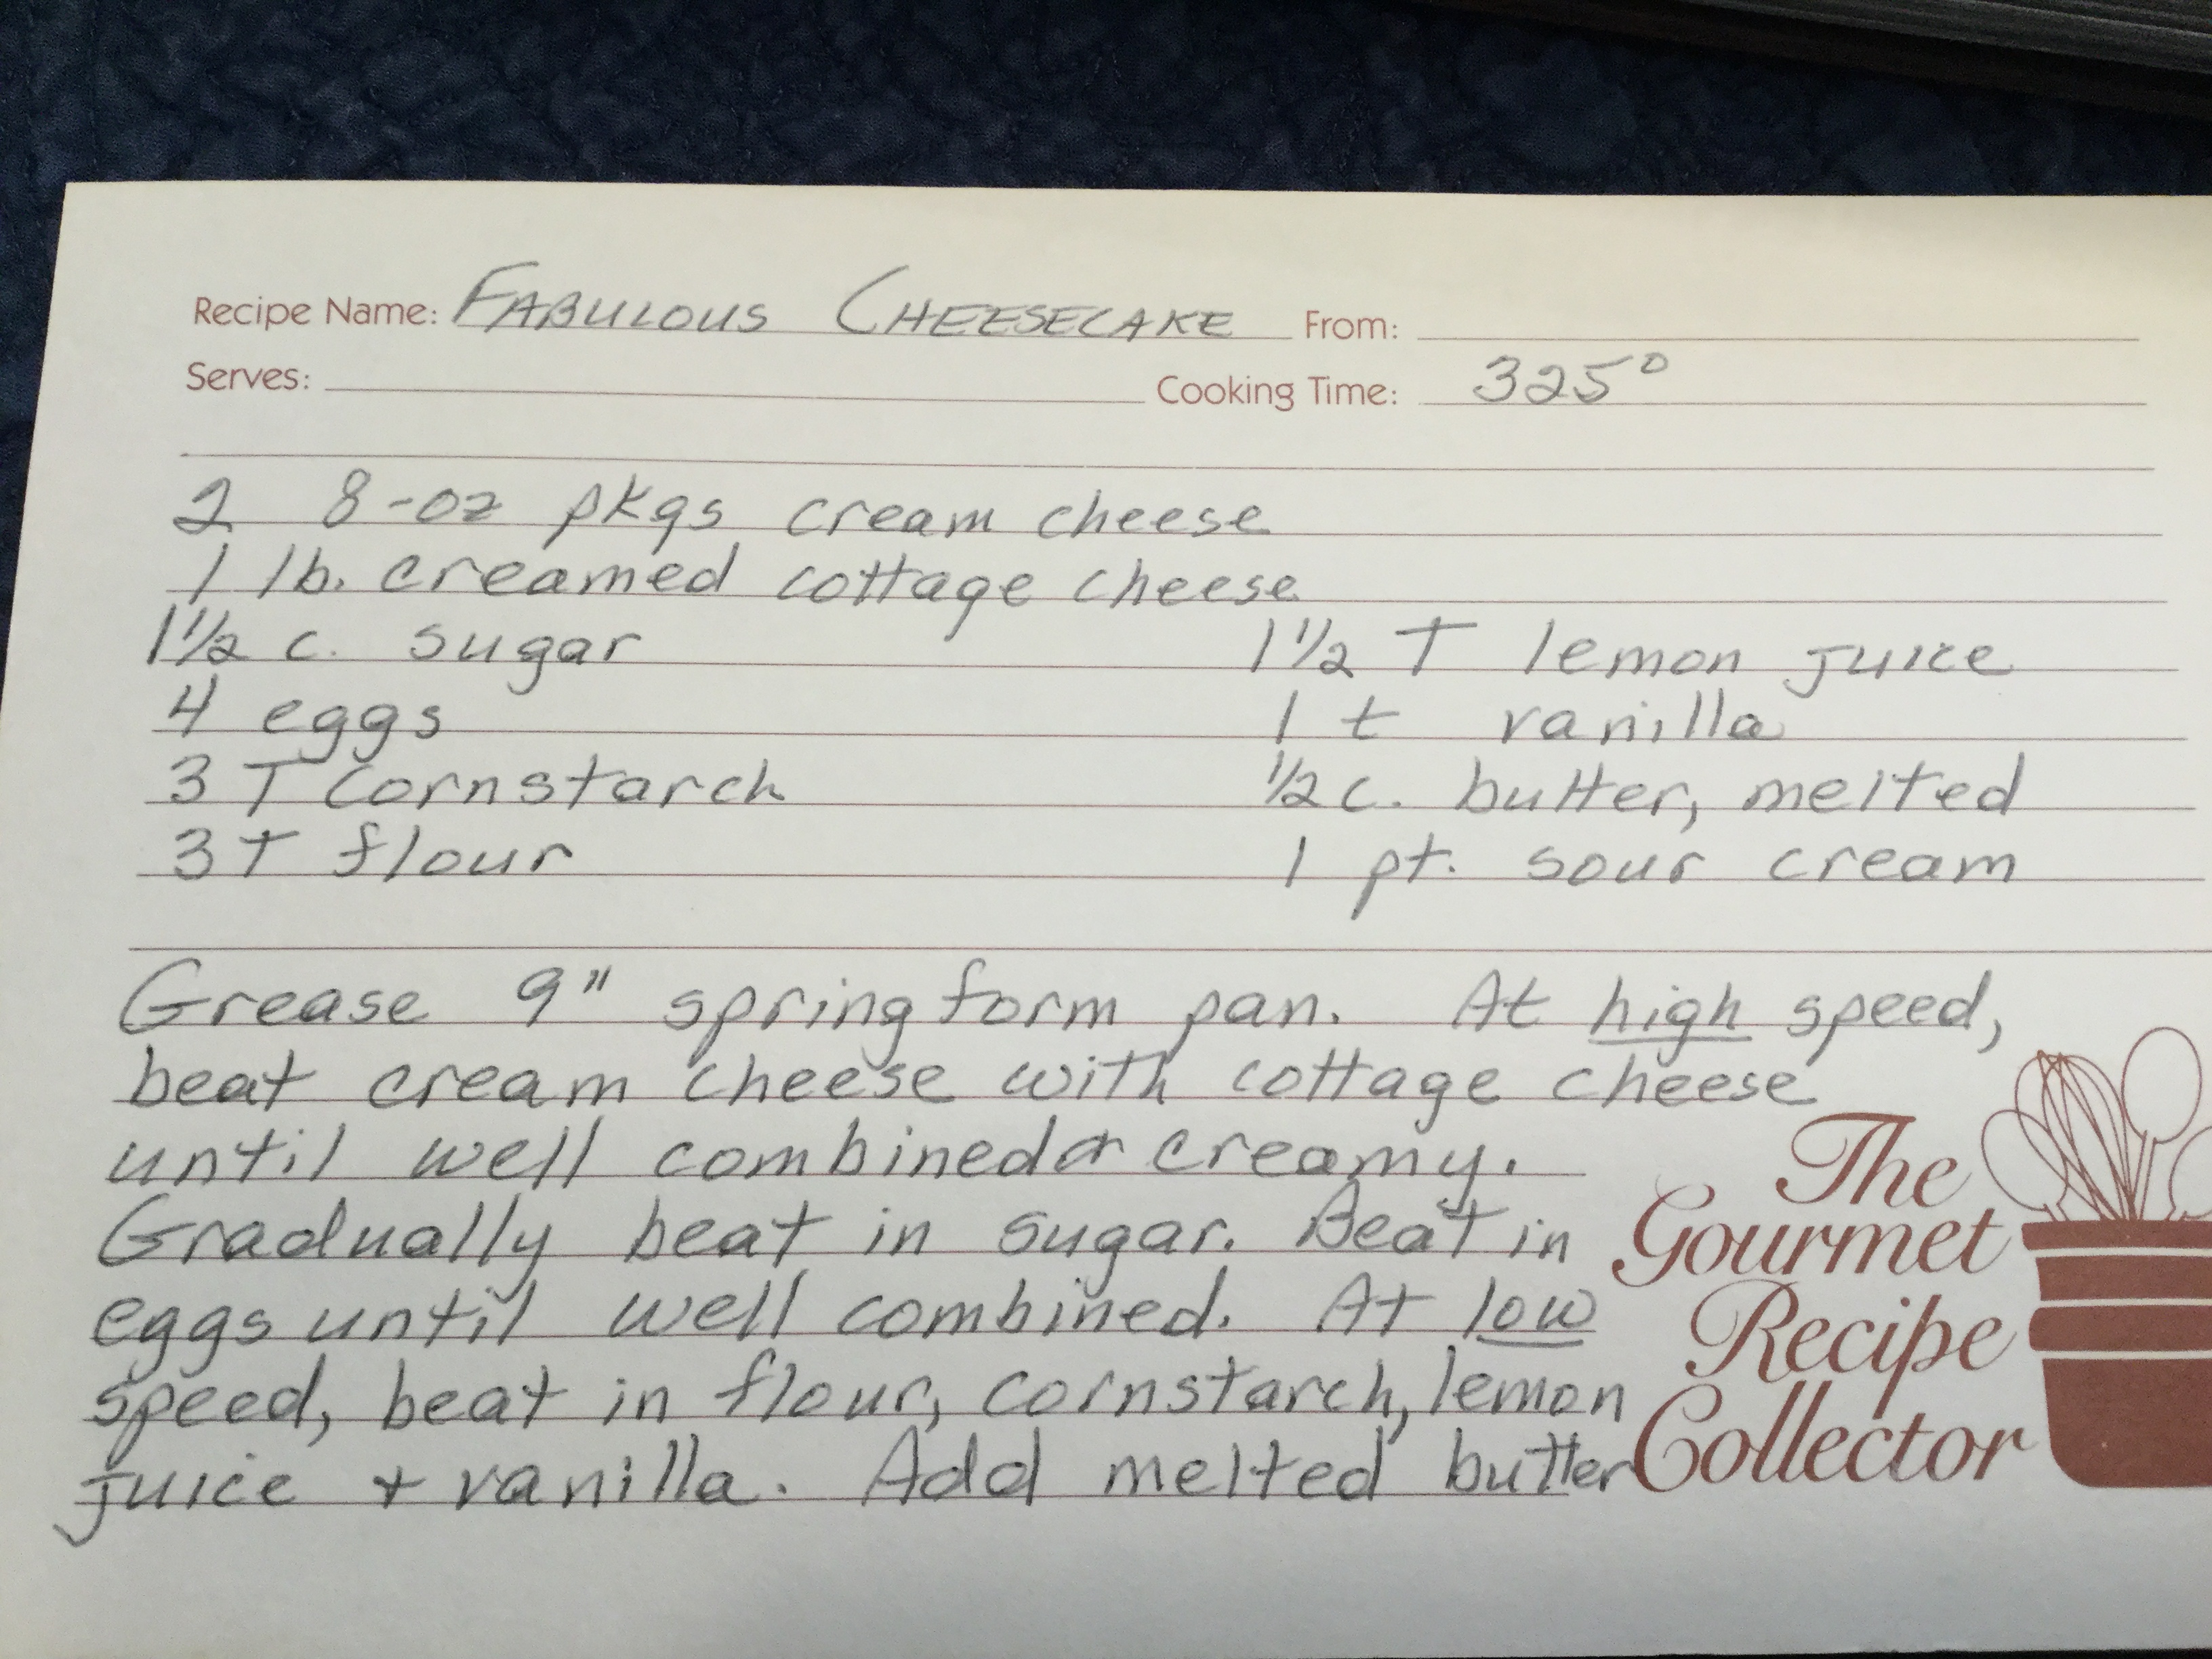 Recipe Name: FABULOUS CHEESECAKE From:
Serves: Cooking Time: 325°
2 8-oz pkgs cream cheese
1 lb. creamed cottage cheese
1 1/2 c. sugar 1 1/2 T lemon juice
4 eggs 1 t vanilla
3 T cornstarch 1/2 c. butter, melted
3 T flour 1 pt. sour cream
Grease 9" springform pan. At high speed,
beat cream cheese with cottage cheese
until well combined & creamy.
Gradually beat in sugar. Beat in
eggs until well combined. At low
speed, beat in flour, cornstarch, lemon
juice + vanilla. Add melted butter
The
Gourmet
Recipe
Collector